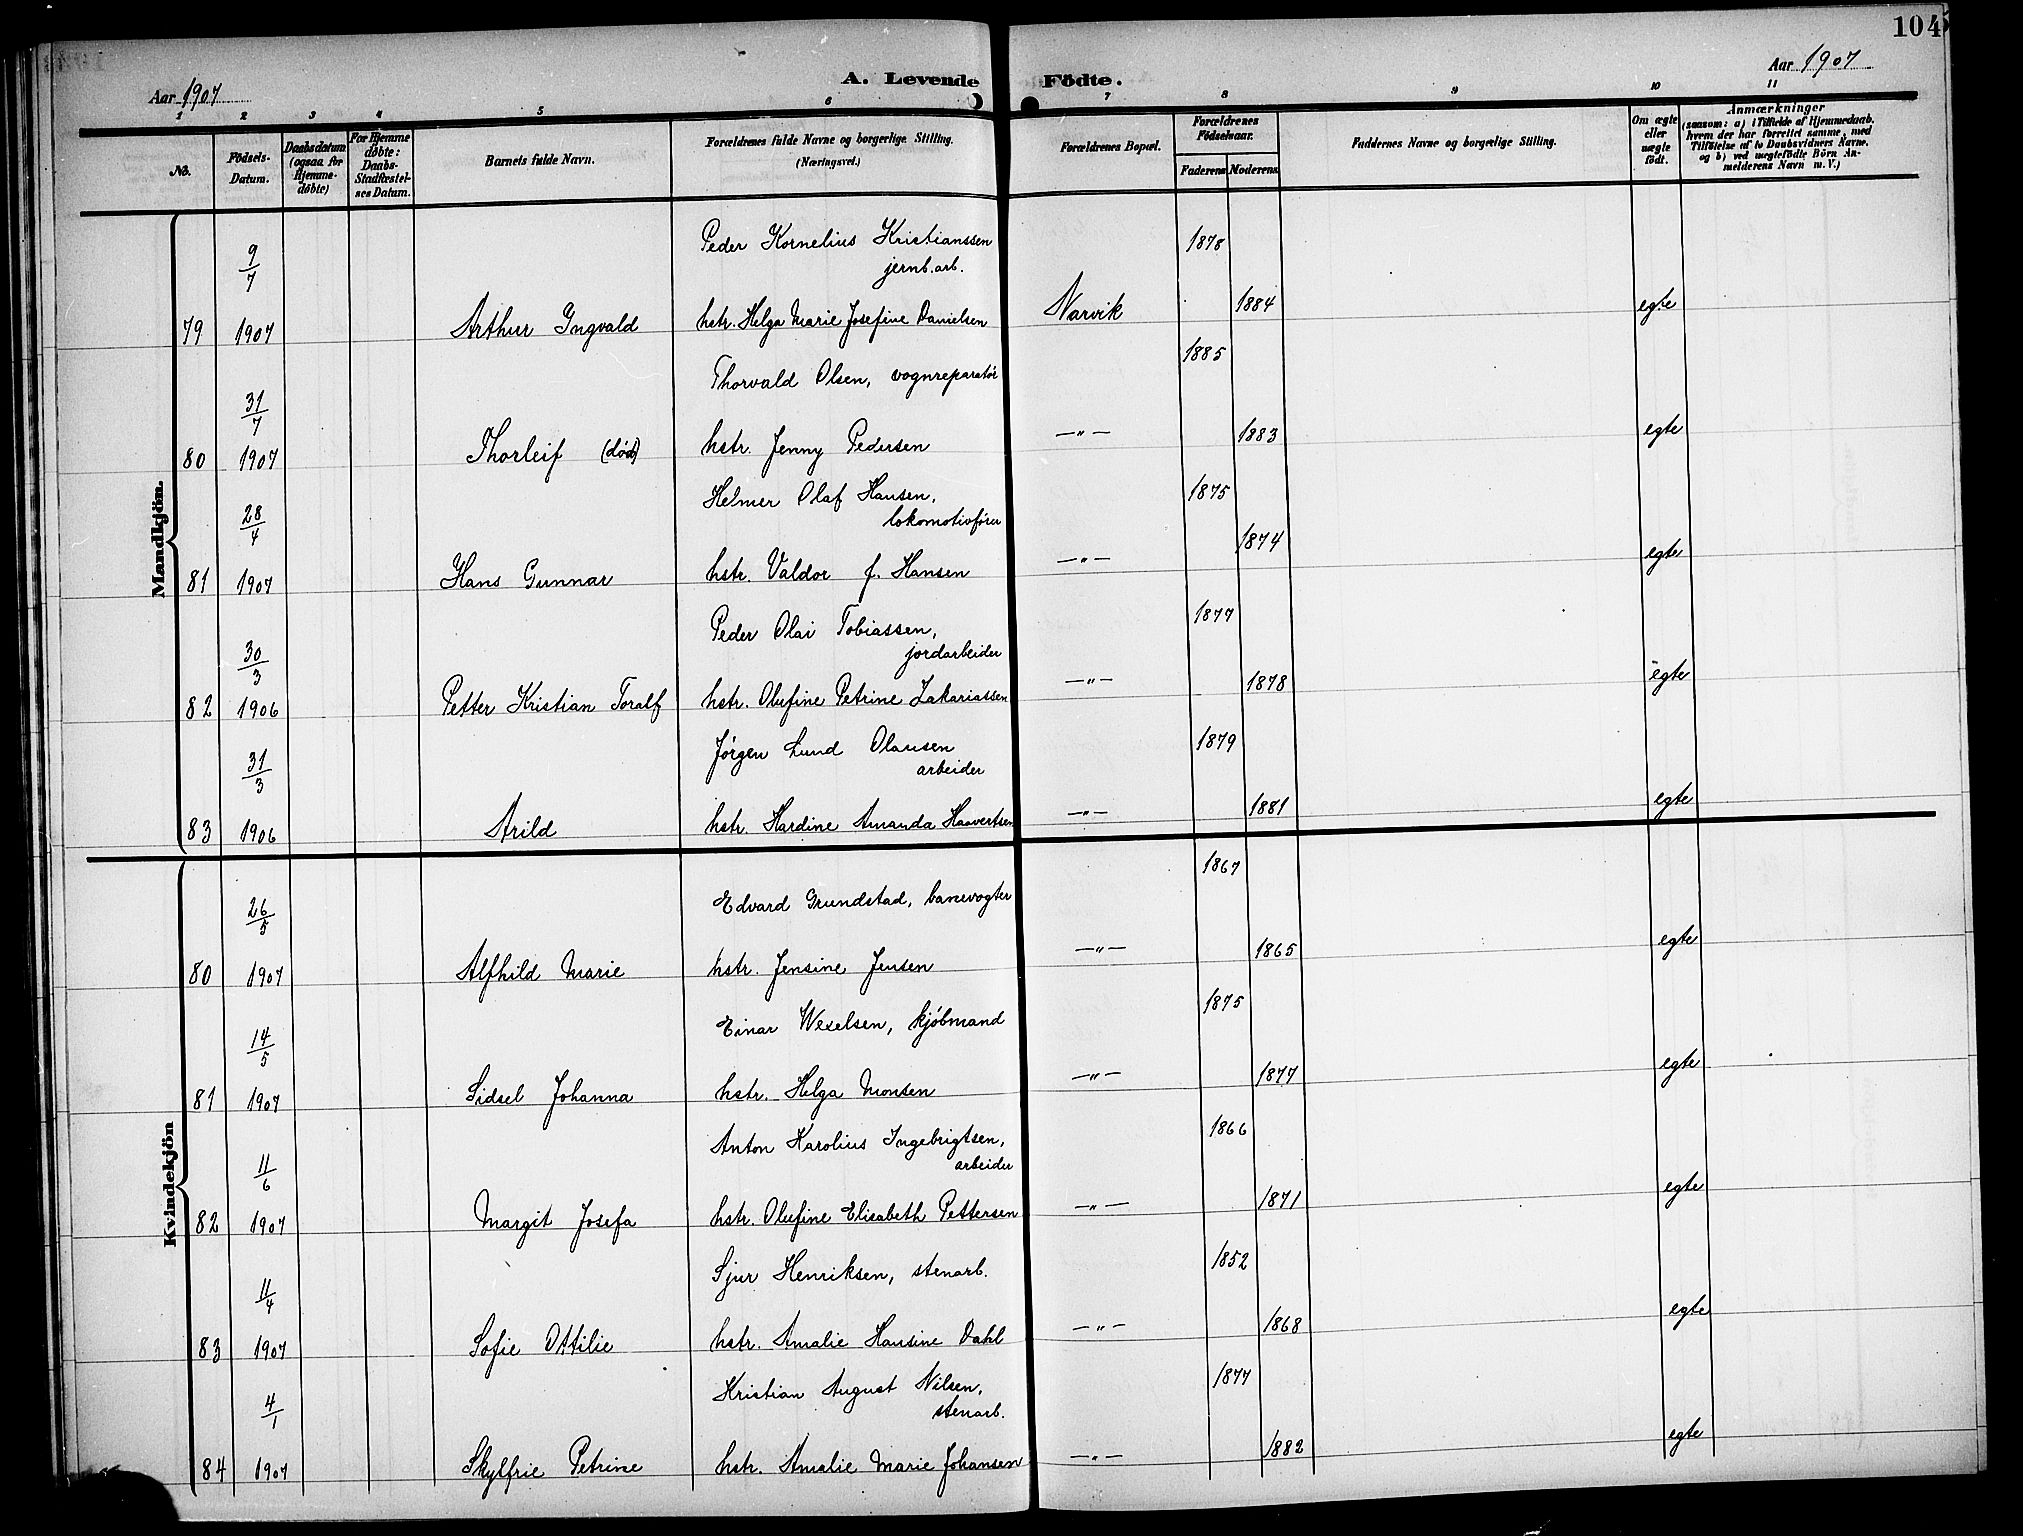 104
A. Levende Födte.
Aar 1907
Aar 1907
1 2 3 4 5 6 7 8 9 10 11
No. Födsels-Datum. Daabsdatum (ogsaa for Hjemme-døbte) For Hjemme døbte: Daabs-Stadfæstel-ses Datum. Barnets fulde Navn. Forældrenes fulde Navne og borgerlige Stilling. (Næringsvei.) Forældrenes Bopæl. Forældrenes Födselsaar. Faderens Moderens Faddernes Navne og borgerlige Stilling. Om ægte eller uægte født. Anmærkninger (saasom: a) i Tilfælde af Hjemmedaab, hvem der har forrettet samme, med Tilföielse af to Daabsvidners Navne, og b) ved uægtefödte Börn An-melderens Navn m.V.)
Mandkjön.
9/7 Peder Kornelius Kristianssen 1878
jernb.arb.
79 1907 Arthur Ingvald hstr. Helga Marie Josefine Danielsen Narvik 1884 egte
31/7 Thorvald Olsen, vognreparatør 1885
80 1907 Thorleif (død) hstr. Jenny Pedersen —"— 1883 egte
28/4 Helmer Olaf Hansen, 1875
lokomotivfører
81 1907 Hans Gunnar hstr. Valdor f. Hansen —"— 1874 egte
30/3 Peder Olai Tobiassen, 1877
jordarbeider
82 1906 Petter Kristian Toralf hstr. Olufine Petrine Zakariassen —"— 1878 egte
31/3 Jørgen Lund Olausen 1879
arbeider
83 1906 Arild hstr. Hardine Amanda Haavertsen —"— 1881 egte
Kvindekjön
26/5 Edvard Grundstad, banevogter 1867
80 1907 Alfhild Marie hstr. Jensine Jensen —"— 1865 egte
14/5 Einar Weselsen, kjøbmand 1875
81 1907 Sidsel Johanna hstr. Helga Monsen —"— 1877 egte
11/6 Anton Karolius Ingebrigtsen, 1866
arbeider
82 1907 Margit Josefa hstr. Olufine Elisabeth Pettersen —"— 1871 egte
11/4 Sjur Henriksen, stenarb. 1852
83 1907 Sofie Ottilie hstr. Amalie Hansine Dahl —"— 1868 egte
4/1 Kristian August Nilsen, 1877
stenarb.
84 1907 Skylfrie Petrine hstr. Amalie Marie Johansen —"— 1882 egte